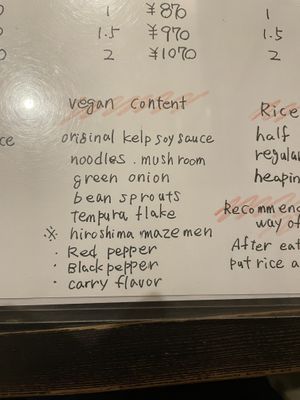 1 ¥870 1
1.5 ¥970 1.5
2 ¥1070 2
vegan content
original kelp soy sauce
noodles. mushroom
green onion
bean sprouts
tempura flake
※ hiroshima mazemen
・Red pepper
・Black pepper
・carry flavor
Rice
half
regular
heaping
Recommend
way of
After eat
put rice a